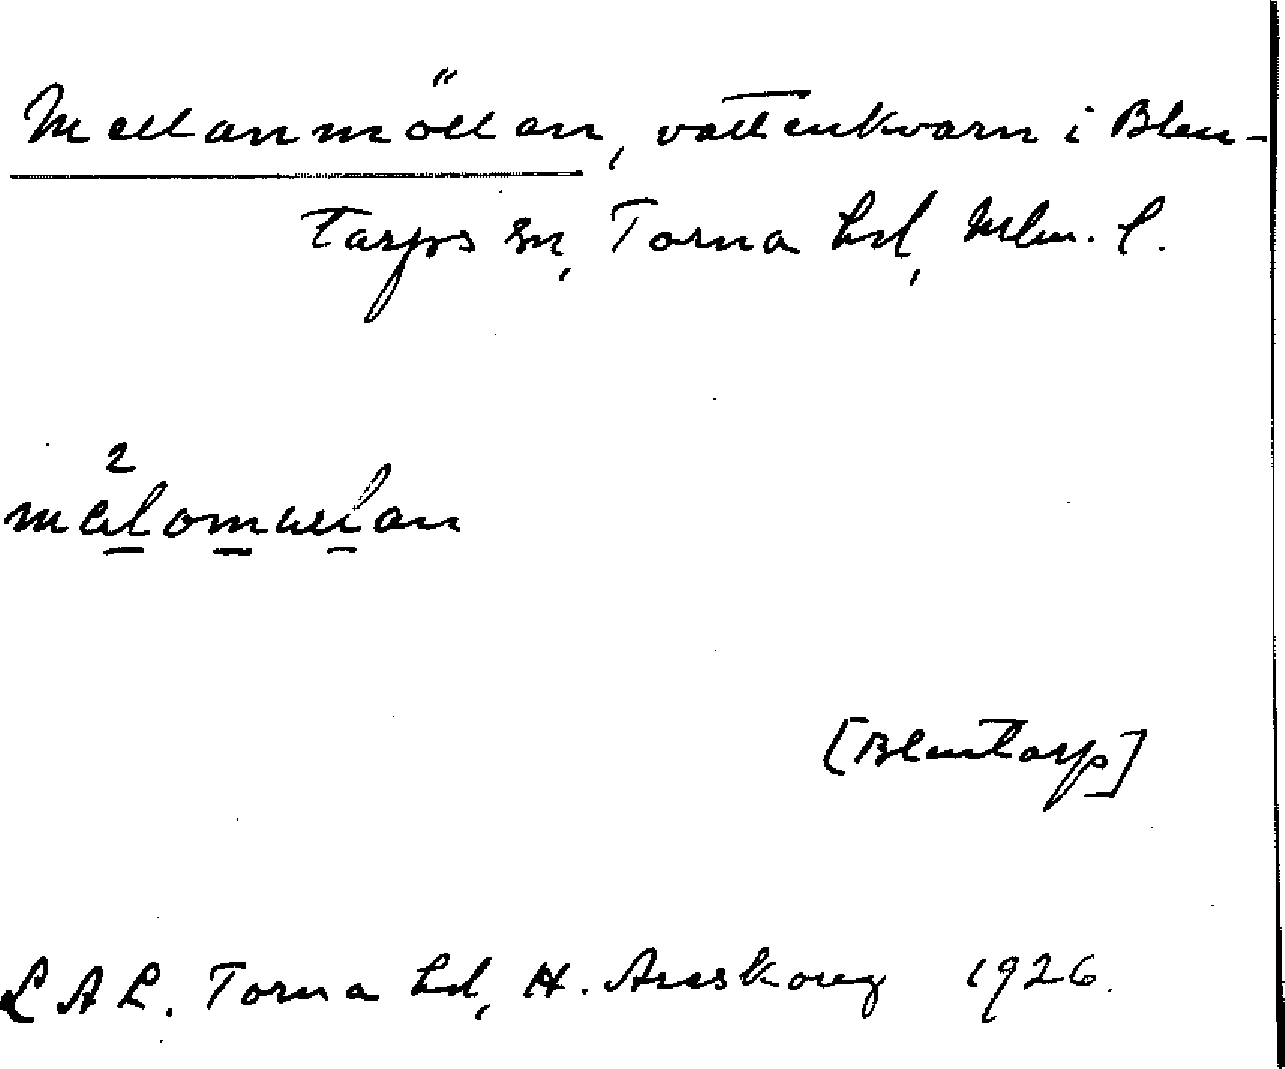 Mellanmöllan, vattenkvarn i Blen-
tarps sn, Torna hd, Mlm. l.
2
[Blentarp]
L A L. Torna hd, H. Areskoug 1926.